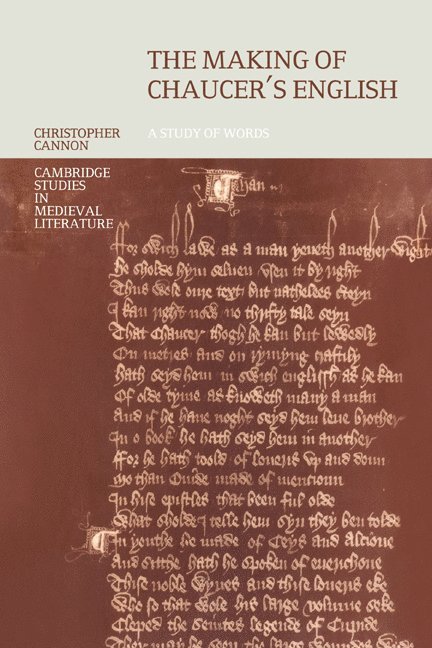 THE MAKING OF
CHAUCER'S ENGLISH
CHRISTOPHER
CANNON
A STUDY OF WORDS
CAMBRIDGE
STUDIES
IN
MEDIEVAL
LITERATURE
ffor swich lawe as a man yeueth another wight
he sholde hym seluen vsen it by right
Thus wole oure text but nathelees
I kan right now no thrifty tale seyn
That Chaucer thogh he kan but lewedly
On metres and on rymyng craftily
hath seyd hem in swich englissh as he kan
Of olde tyme as knoweth many a man
And if he haue noght seyd hem leue brother
In o book he hath seyd hem in another
ffor he hath toold of louers vp and doun
Mo than Ouide made of mencioun
In hise epistles that been ful olde
What sholde I telle hem syn they ben tolde
In youthe he made of Ceys and Alcione
And sitthe hath he spoken of euerichone
Thise noble wyues and thise louers eke
Who so that wole his large volume seke
Cleped the seintes legende of Cupide